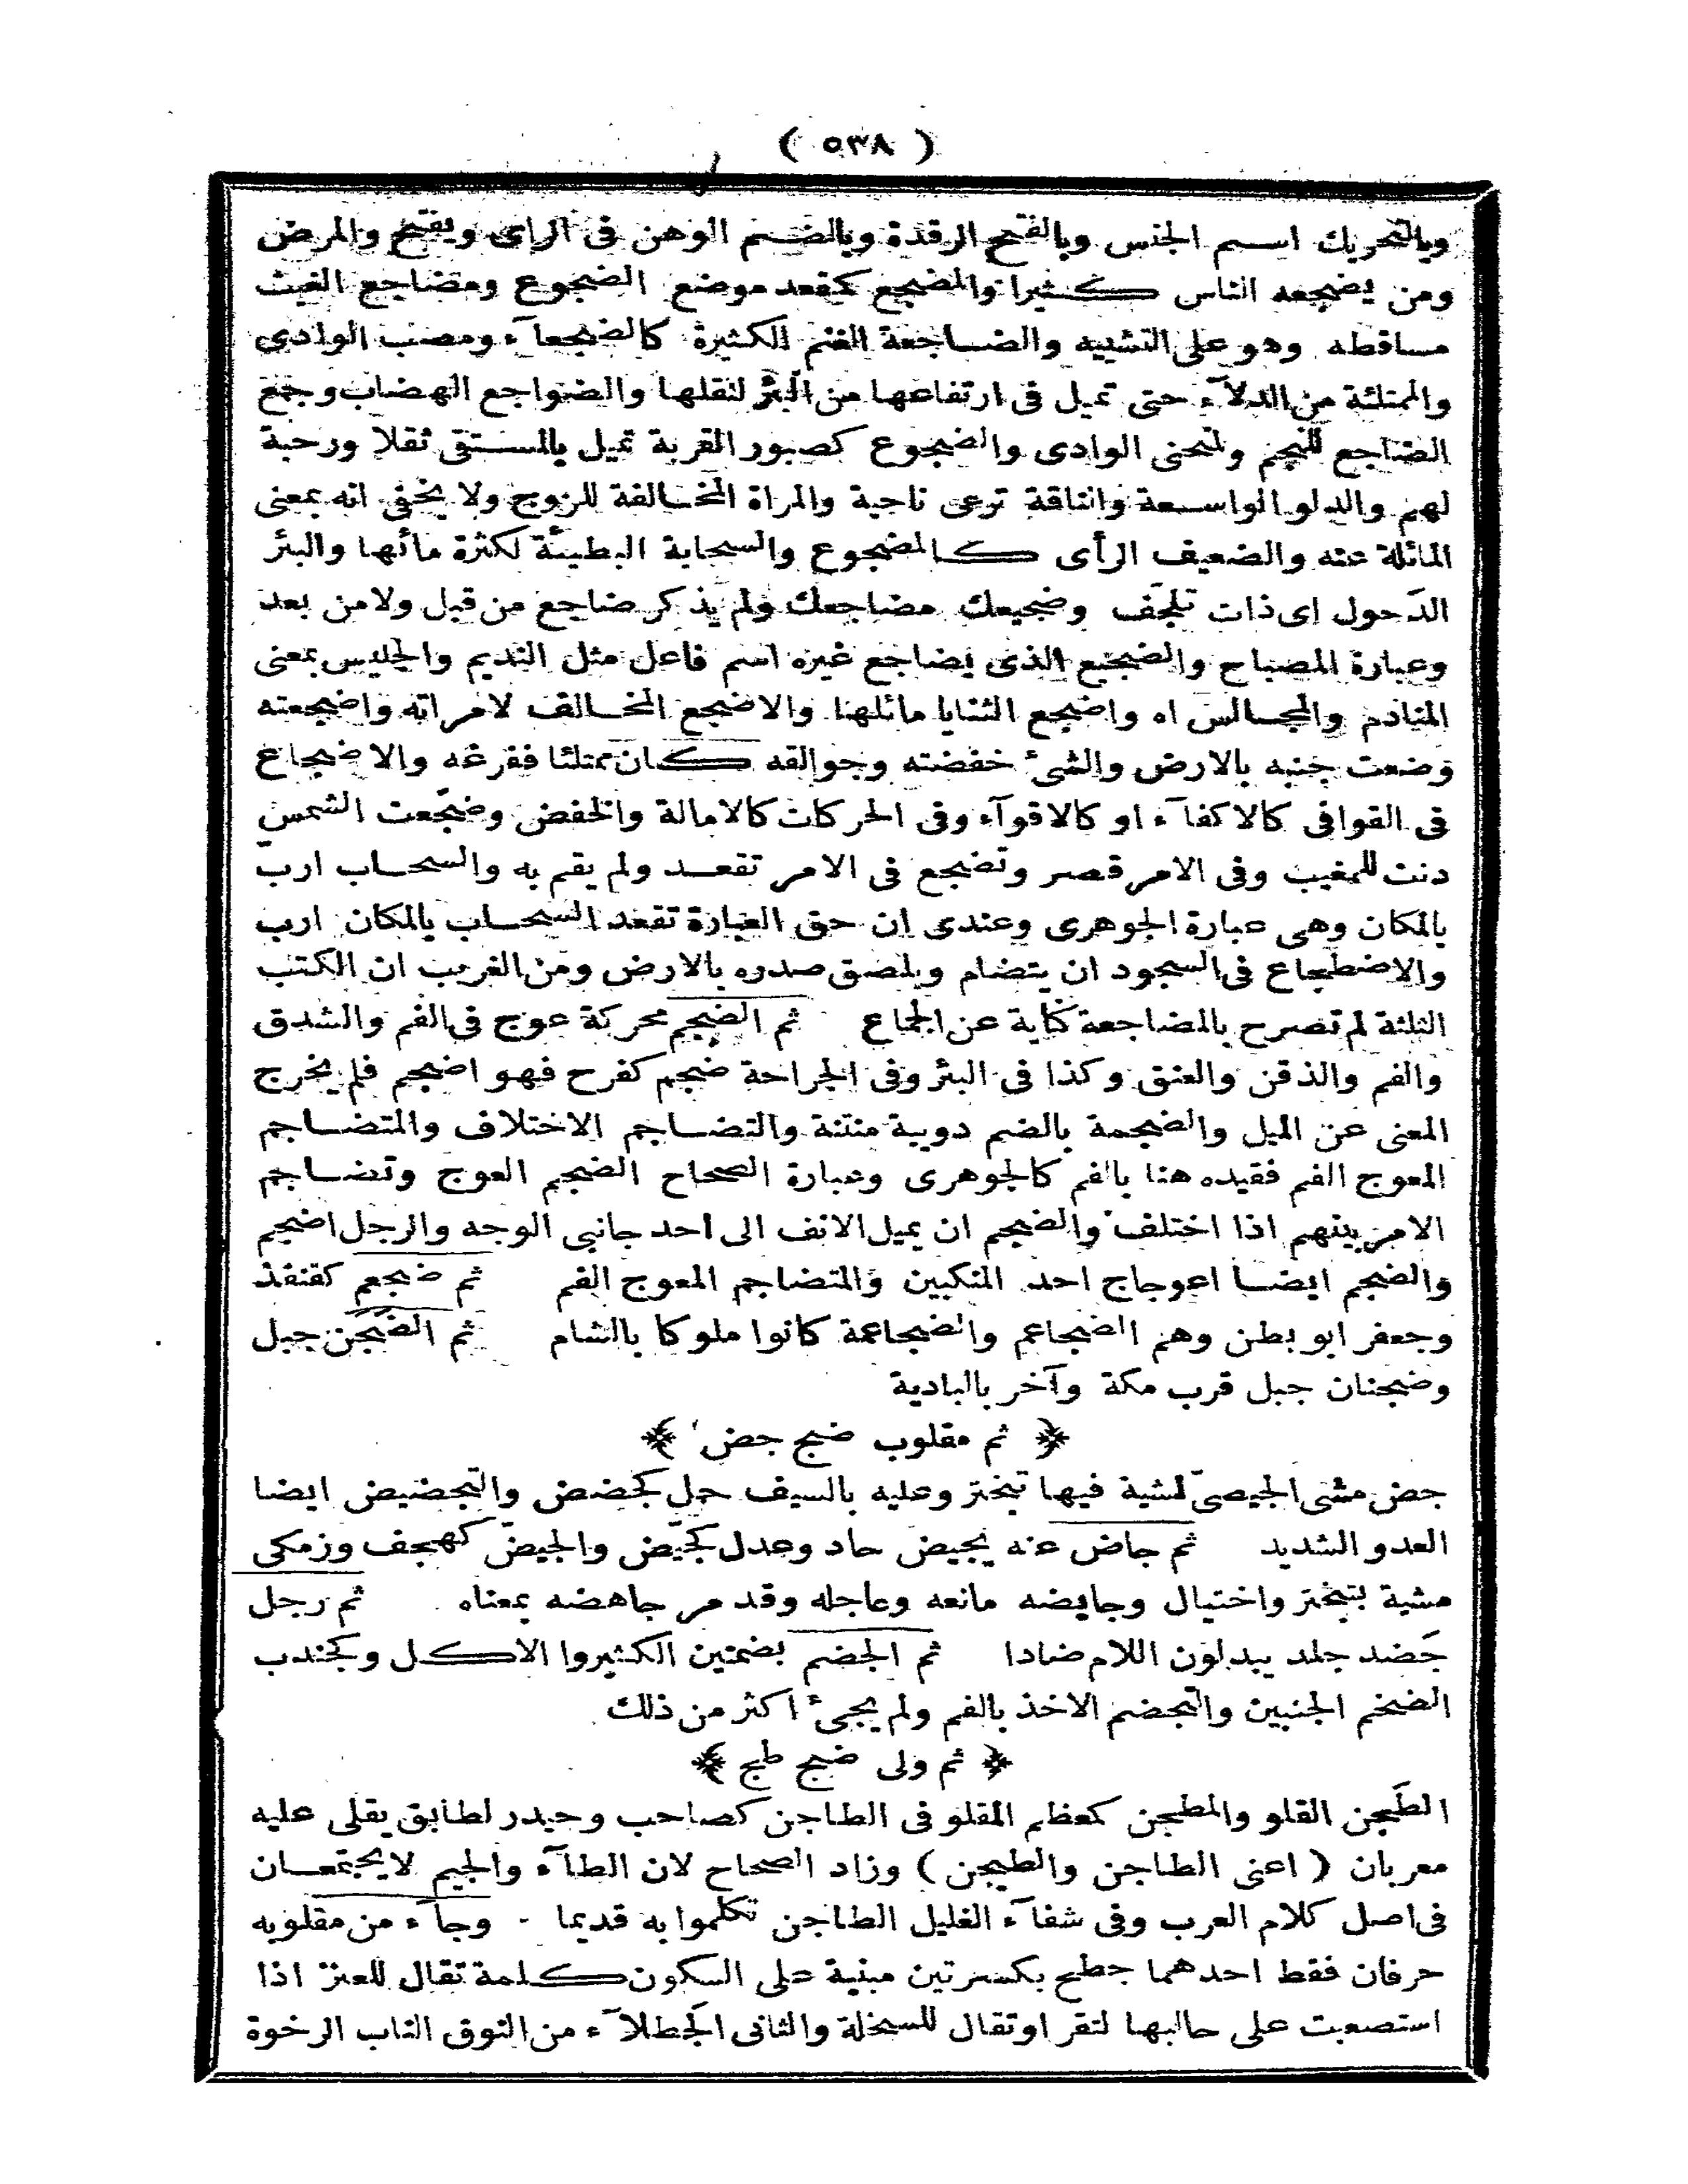 ( ٥٣٨ )
وبالتحريك اسم الجنس وبالفتح الرقدة وبالضم الوهن فى الراى ويفتح والمرض
ومن يضجعه الناس كثيرا والمضجع كمقعد موضع الضجوع ومضاجع الغيث
مساقطه وهو على التشبيه والضاجعة الغنم الكثيرة كالضجعآء ومصب الوادى
والممتلئة من الدلآء حتى تميل فى ارتفاعها من البئر لثقلها والضواجع الهضاب وجمع
الضاجع للنجم ولمنحنى الوادى والضجوع كصبور القربة تميل بالمستقى ثقلا ورحبة
لهم والدلو الواسعة والناقة ترعى ناحية والمراة المخالفة للزوج ولا يخفى انه بمعنى
المائلة عنه والضعيف الرأى كالمضجوع والسحابة البطيئة لكثرة مائها والبئر
الدَحول اى ذات تلجّف وضجيعك مضاجعك ولم يذكر ضاجع من قبل ولا من بعد
وعبارة المصباح والضجيع الذى يضاجع غيره اسم فاعل مثل النديم والجليس بمعنى
المنادم والمجالس اه واضجع الثنايا مائلها والاضجع المخالف لامراته واضجعته
وضعت جنبه بالارض والشىء خفضته وجوالقه كان ممتلئا ففرغه والاضجاع
فى القوافى كالاكفآء او كالاقوآء وفى الحركات كالامالة والخفض وضجّعت الشمس
دنت للمغيب وفى الامر قصر وتضجع فى الامر تقعد ولم يقم به والسحاب ارب
بالمكان وهى عبارة الجوهرى وعندى ان حق العبارة تقعد السحاب بالمكان ارب
والاضطجاع فى السجود ان يتضام ويلصق صدره بالارض ومن الغريب ان الكتب
الثلثة لم تصرح بالمضاجعة كناية عن الجماع ثم الضجم محركة عوج فى الفم والشدق
والفم والذقن والعنق وكذا فى البئر وفى الجراحة ضجم كفرح فهو اضجم فلم يخرج
المعنى عن الميل والضجمة بالضم دويبة منتنة والتضاجم الاختلاف والمتضاجم
المعوج الفم فقيده هنا بالفم كالجوهرى وعبارة الصحاح الضجم العوج وتضاجم
الامر بينهم اذا اختلف والضجم ان يميل الانف الى احد جانبى الوجه والرجل اضجم
والضجم ايضا اعوجاج احد المنكبين والمتضاجم المعوج الفم ثم ضجعم كقنفذ
وجعفر ابو بطن وهم الضجاعم والضجاعمة كانوا ملوكا بالشام ثم الضَجَن جبل
وضجنان جبل قرب مكة وآخر بالبادية
﴿ ثم مقلوب ضج جض ﴾
جض مشى الجيضىّ لمشية فيها تبختر وعليه بالسيف حمل كجضض والتجضيض ايضا
العدو الشديد ثم جاض عنه يجيض حاد وعدل كجيّض والجيضّ كهجف وزمكى
مشية بتبختر واختيال وجايضه مانعه وعاجله وقد مر جاهضه بمعناه ثم رجل
جَضد جلد يبدلون اللام ضادا ثم الجضم بضمتين الكثيروا الاكل وكجندب
الضخم الجنبين والتجضم الاخذ بالفم ولم يجئ اكثر من ذلك
﴿ ثم ولى ضج طج ﴾
الطَجن القلو والمطجن كمعظم المقلو فى الطاجن كصاحب وحيدر لطابق يقلى عليه
معربان ( اعنى الطاجن والطيجن ) وزاد الصحاح لان الطآء والجيم لا يجتمعان
فى اصل كلام العرب وفى شفآء الغليل الطاجن تكلموا به قديما - وجآء من مقلوبه
حرفان فقط احدهما جطح بكسرتين مبنية على السكون كلمة تقال للعنز اذا
استصعبت على حالبها لتقر او تقال للسخلة والثانى الجَطلآء من النوق الناب الرخوة